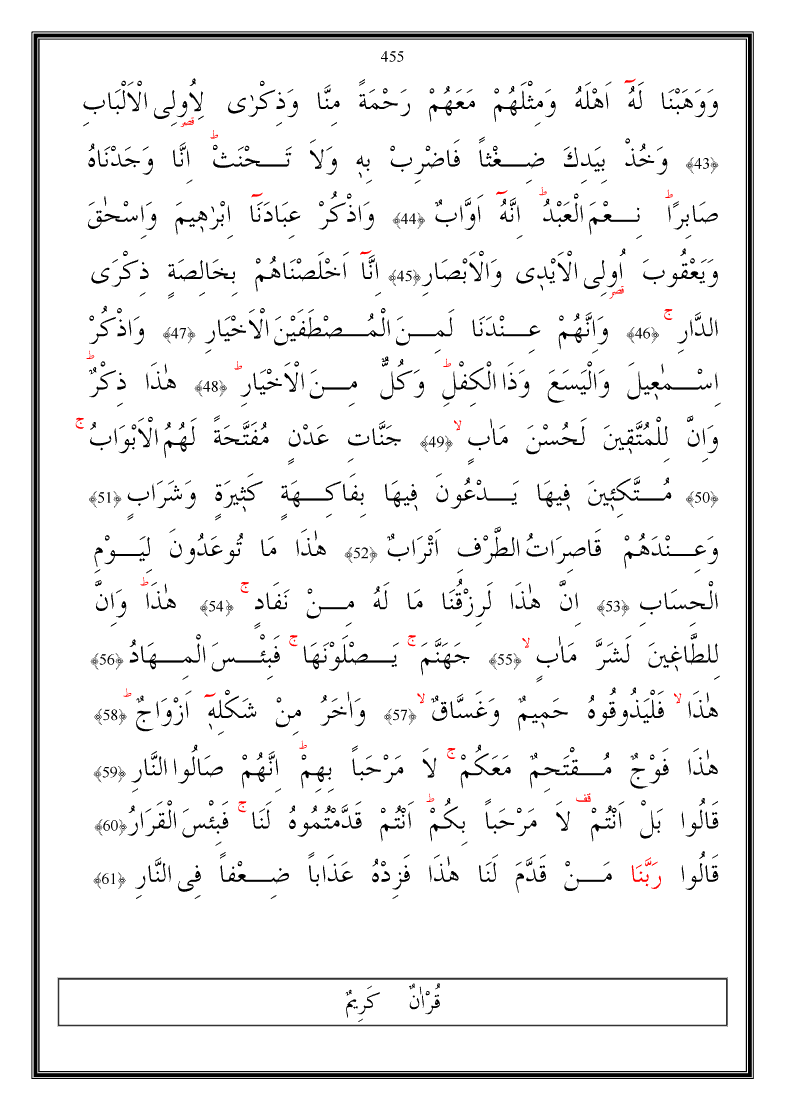 455
وَوَهَبْنَا لَهُٓ اَهْلَهُ وَمِثْلَهُمْ مَعَهُمْ رَحْمَةً مِنَّا وَذِكْرٰى لِاُو۬لِى الْاَلْبَابِ
﴿43﴾ وَخُذْ بِيَدِكَ ضِغْثاً فَاضْرِبْ بِهِ وَلاَ تَحْنَثْۜ اِنَّا وَجَدْنَاهُ
صَابِرًاۜ نِعْمَ الْعَبْدُۜ اِنَّهُٓ اَوَّابٌ ﴿44﴾ وَاذْكُرْ عِبَادَنَٓا اِبْرٰهِيمَ وَاِسْحٰقَ
وَيَعْقُوبَ اُو۬لِى الْاَيْدِى وَالْاَبْصَارِ ﴿45﴾ اِنَّٓا اَخْلَصْنَاهُمْ بِخَالِصَةٍ ذِكْرَى
الدَّارِۚ ﴿46﴾ وَاِنَّهُمْ عِنْدَنَا لَمِنَ الْمُصْطَفَيْنَ الْاَخْيَارِ ﴿47﴾ وَاذْكُرْ
اِسْمٰعِيلَ وَالْيَسَعَ وَذَا الْكِفْلِۜ وَكُلٌّ مِنَ الْاَخْيَارِۜ ﴿48﴾ هٰذَا ذِكْرٌۜ
وَاِنَّ لِلْمُتَّقِينَ لَحُسْنَ مَاٰبٍۙ ﴿49﴾ جَنَّاتِ عَدْنٍ مُفَتَّحَةً لَهُمُ الْاَبْوَابُۚ
﴿50﴾ مُتَّكِئِينَ فِيهَا يَدْعُونَ فِيهَا بِفَاكِهَةٍ كَثِيرَةٍ وَشَرَابٍ ﴿51﴾
وَعِنْدَهُمْ قَاصِرَاتُ الطَّرْفِ اَتْرَابٌ ﴿52﴾ هٰذَا مَا تُوعَدُونَ لِيَوْمِ
الْحِسَابِ ﴿53﴾ اِنَّ هٰذَا لَرِزْقُنَا مَا لَهُ مِنْ نَفَادٍۚ ﴿54﴾ هٰذَاۜ وَاِنَّ
لِلطَّاغِينَ لَشَرَّ مَاٰبٍۙ ﴿55﴾ جَهَنَّمَۚ يَصْلَوْنَهَاۚ فَبِئْسَ الْمِهَادُ ﴿56﴾
هٰذَاۙ فَلْيَذُوقُوهُ حَمِيمٌ وَغَسَّاقٌۙ ﴿57﴾ وَاٰخَرُ مِنْ شَكْلِهِٓ اَزْوَاجٌۜ ﴿58﴾
هٰذَا فَوْجٌ مُقْتَحِمٌ مَعَكُمْۚ لاَ مَرْحَباً بِهِمْۜ اِنَّهُمْ صَالُوا النَّارِ ﴿59﴾
قَالُوا بَلْ اَنْتُمْ۠ لاَ مَرْحَباً بِكُمْۜ اَنْتُمْ قَدَّمْتُمُوهُ لَنَاۚ فَبِئْسَ الْقَرَارُ ﴿60﴾
قَالُوا رَبَّنَا مَنْ قَدَّمَ لَنَا هٰذَا فَزِدْهُ عَذَاباً ضِعْفاً فِى النَّارِ ﴿61﴾
قُرْاٰنٌ كَرِيمٌ